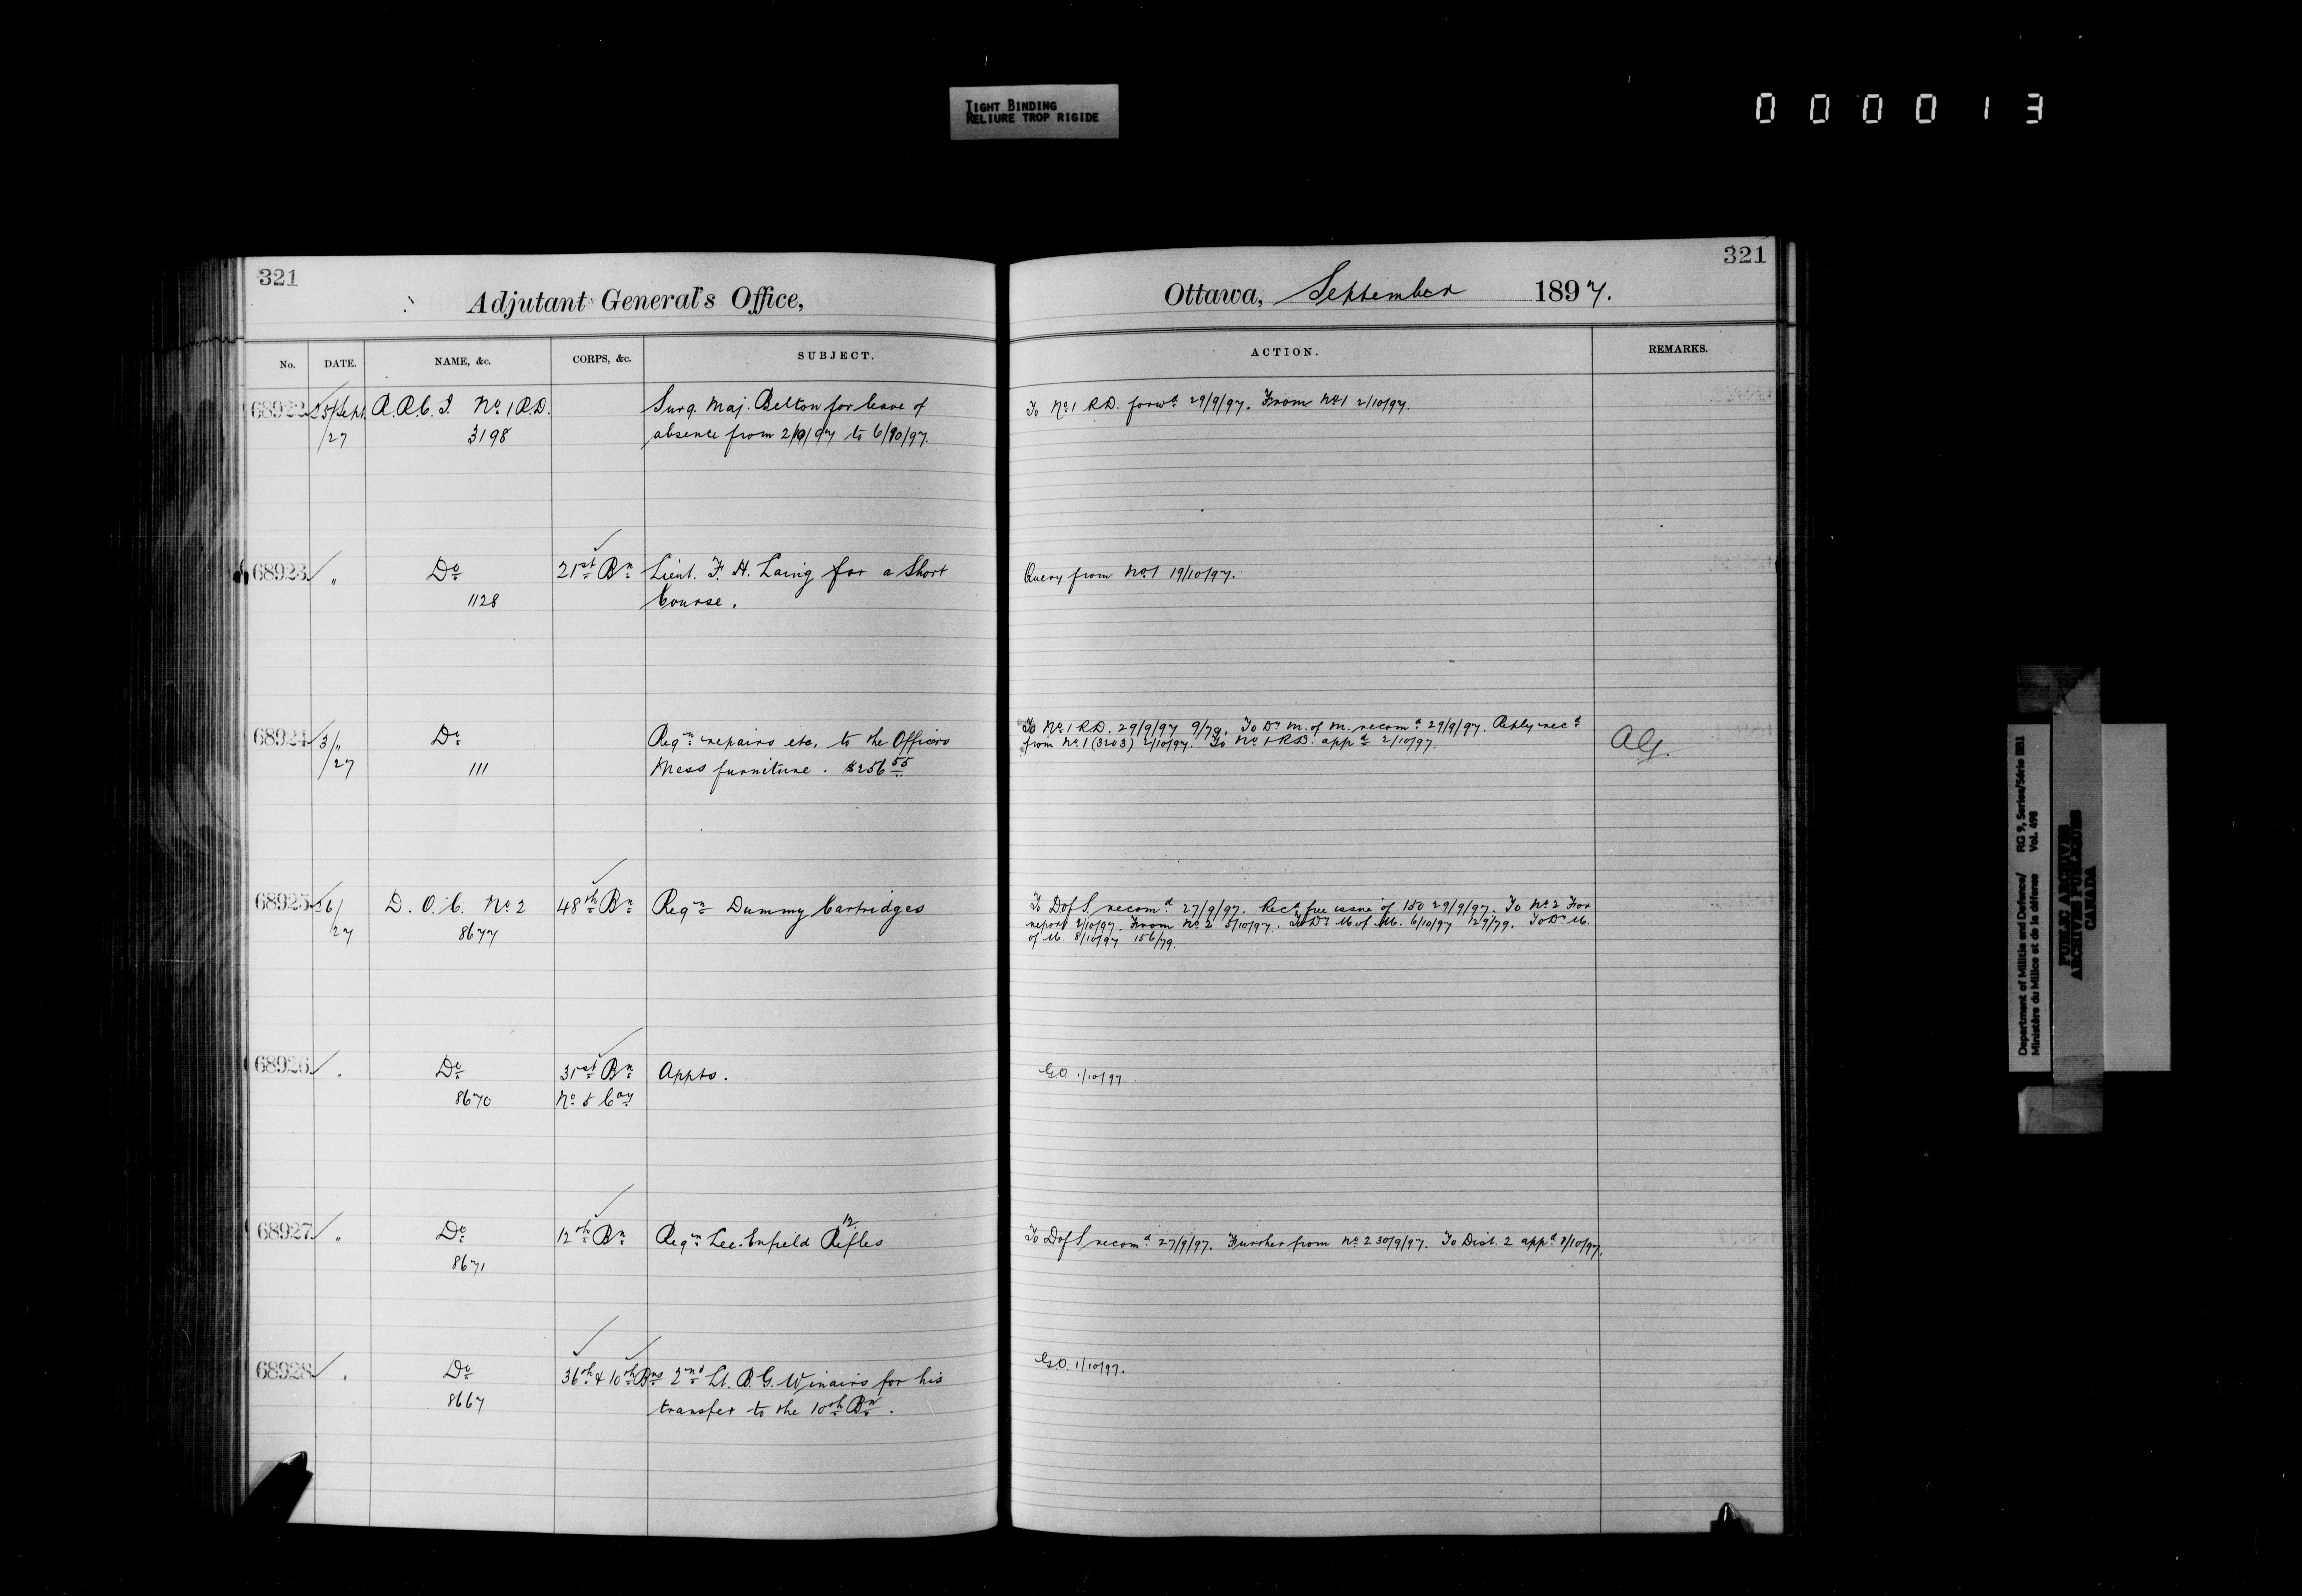 TIGHT BINDING
RELIURE TROP RIGIDE
0 0 0 0 1 3
321
Adjutant General's Office,
No. DATE. NAME, &c. CORPS, &c. SUBJECT.
68922 25/Sept. R.R.C.I. No. 1 R.D. Surg. Maj. Belton for leave of
/27 3198 absence from 2/9/97 to 6/10/97.
68923 " Do 21st Bn Lieut. F. H. Laing for a Short
1128 Course.
68924 3/" Do Reqn repairs etc. to the Officers
/27 111 Mess furniture. $256 55
68925 26/ D. O. C. No 2 48th Bn Reqn Dummy Cartridges
27 8677
68926 " Do 31st Bn Appts.
8670 No 5 Coy
68927 " Do 12th Bn Reqn Lee-Enfield 12 Rifles
8671
68928 " Do 36th & 10th Bns 2nd Lt. B. G. Winans for his
8667 transfer to the 10th Bn.
321
Ottawa, September 1897.
ACTION. REMARKS.
To No 1 R.D. forwd 29/9/97. From No 1 2/10/97.
Query from No 1 19/10/97.
To No 1 R.D. 29/9/97 9/79. To Dr M. of M. recomd 29/9/97. Reply recd
from No. 1 (3203) 2/10/97. To No 1 R.D. appd 2/10/97. AG.
To D of S. recomd 27/9/97. Recd free issue of 150 29/9/97. To No 2 For
report 2/10/97. From No 2 5/10/97. To Dr M. of M. 6/10/97 129/79. To Dr M.
of M. 8/10/97 156/79.
GO 1/10/97
To D of S recomd 27/9/97. Further from No 2 30/9/97. To Dist. 2 appd 8/10/97.
GO. 1/10/97.
Department of Militia and Defence/ RG 9, Series/Série IIB1
Ministère du Milice et de la défense Vol. 498
PUBLIC ARCHIVES
ARCHIVES PUBLIQUES
CANADA